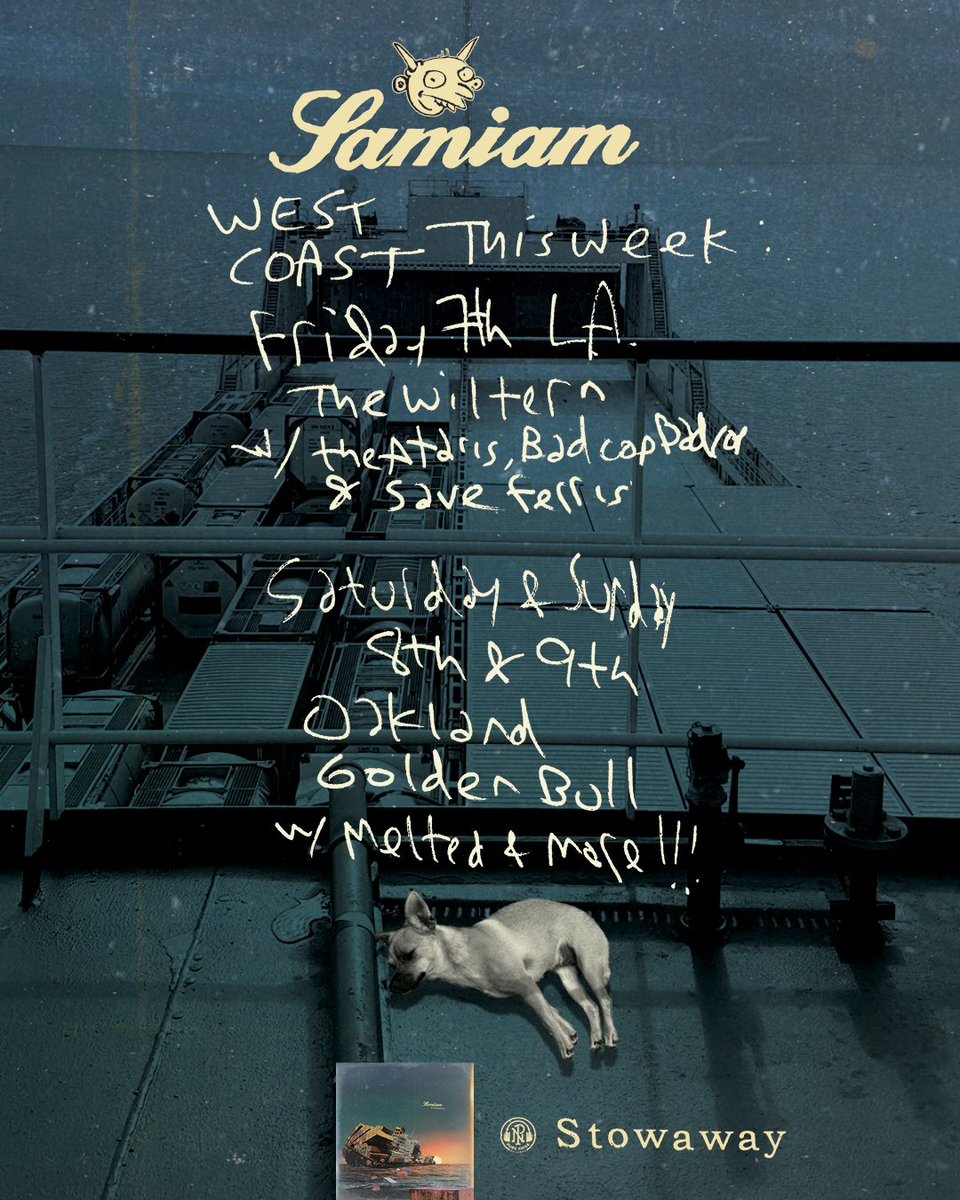 Samiam
WEST
COAST This Week:
Friday 7th LA.
The Wiltern
w/ the Ataris, Bad cop Bad cop
& Save Ferris
Saturday & Sunday
8th & 9th
Oakland
Golden Bull
w/ Melted & More!!!
Samiam
Stowaway